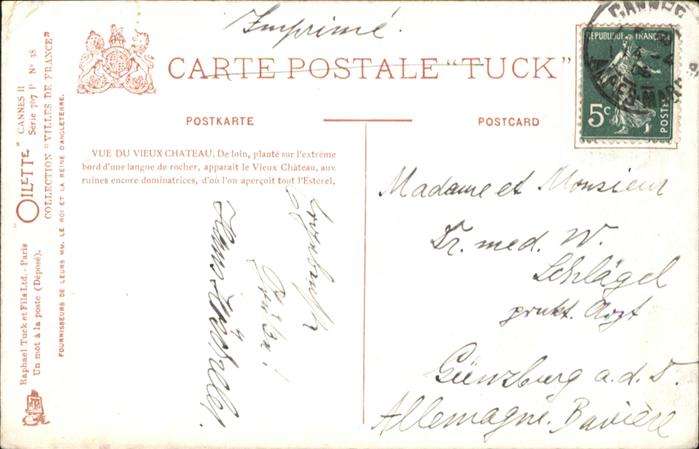 Imprimé
CARTE POSTALE "TUCK"
POSTKARTE
POSTCARD
VUE DU VIEUX CHATEAU. De loin, planté sur l'extrême
bord d'une langue de rocher, apparait le Vieux Château, aux
ruines encore dominatrices, d'où l'on aperçoit tout l'Esterel.
"OILETTE" CANNES II
Série 707 P N° 38
COLLECTION "VILLES DE FRANCE"
FOURNISSEURS DE LEURS MM. LE ROI ET LA REINE D'ANGLETERRE.
Raphael Tuck et Fils Ltd.- Paris
Un mot à la poste (Déposé).
CANNES
REPUBLIQUE FRANÇAISE
5c
POSTES
Madame et Monsieur
Dr. med. W.
Schlägel
prakt. Arzt
Günzburg a.d.D.
Allemagne. Bavière